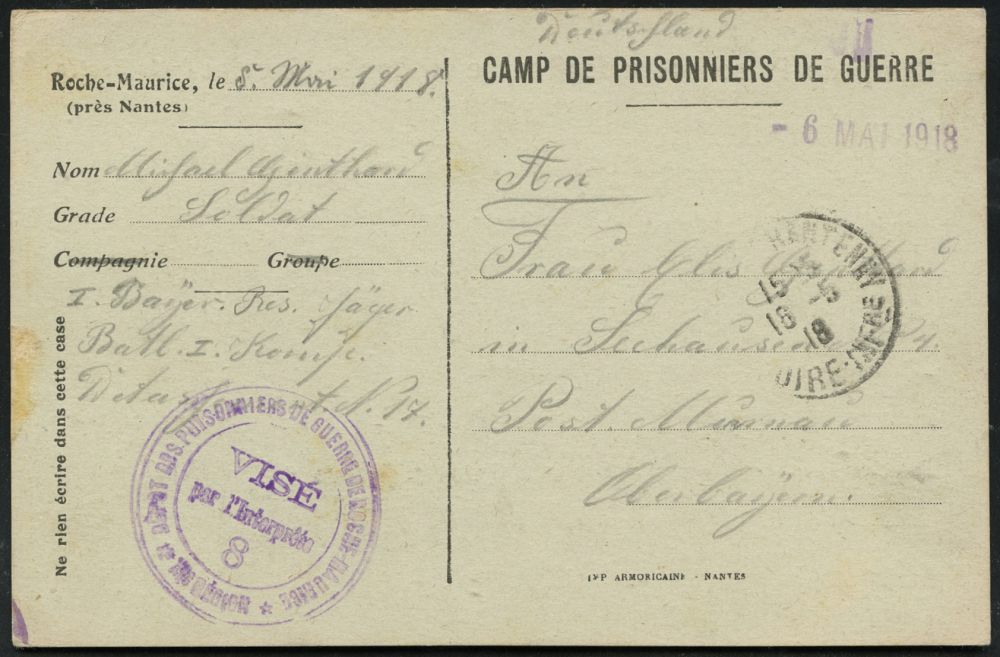 Roche-Maurice, le 5. Mai 1918.
(près Nantes)
Nom Michael
Grade Soldat
Compagnie Groupe
I. Bayer. Res. Jäger
Batl. I. Komp.
N. 17.
Ne rien écrire dans cette case
DÉPÔT DES PRISONNIERS DE GUERRE DE ROCHE-MAURICE
VISÉ
par l'Interprète
8
Deutschland
CAMP DE PRISONNIERS DE GUERRE
- 6 MAI 1918
An
Frau
in Seehausen
Post. Murnau
Oberbayern.
CHANTENAY
LOIRE-INFRE
18
IMP ARMORICAINE - NANTES